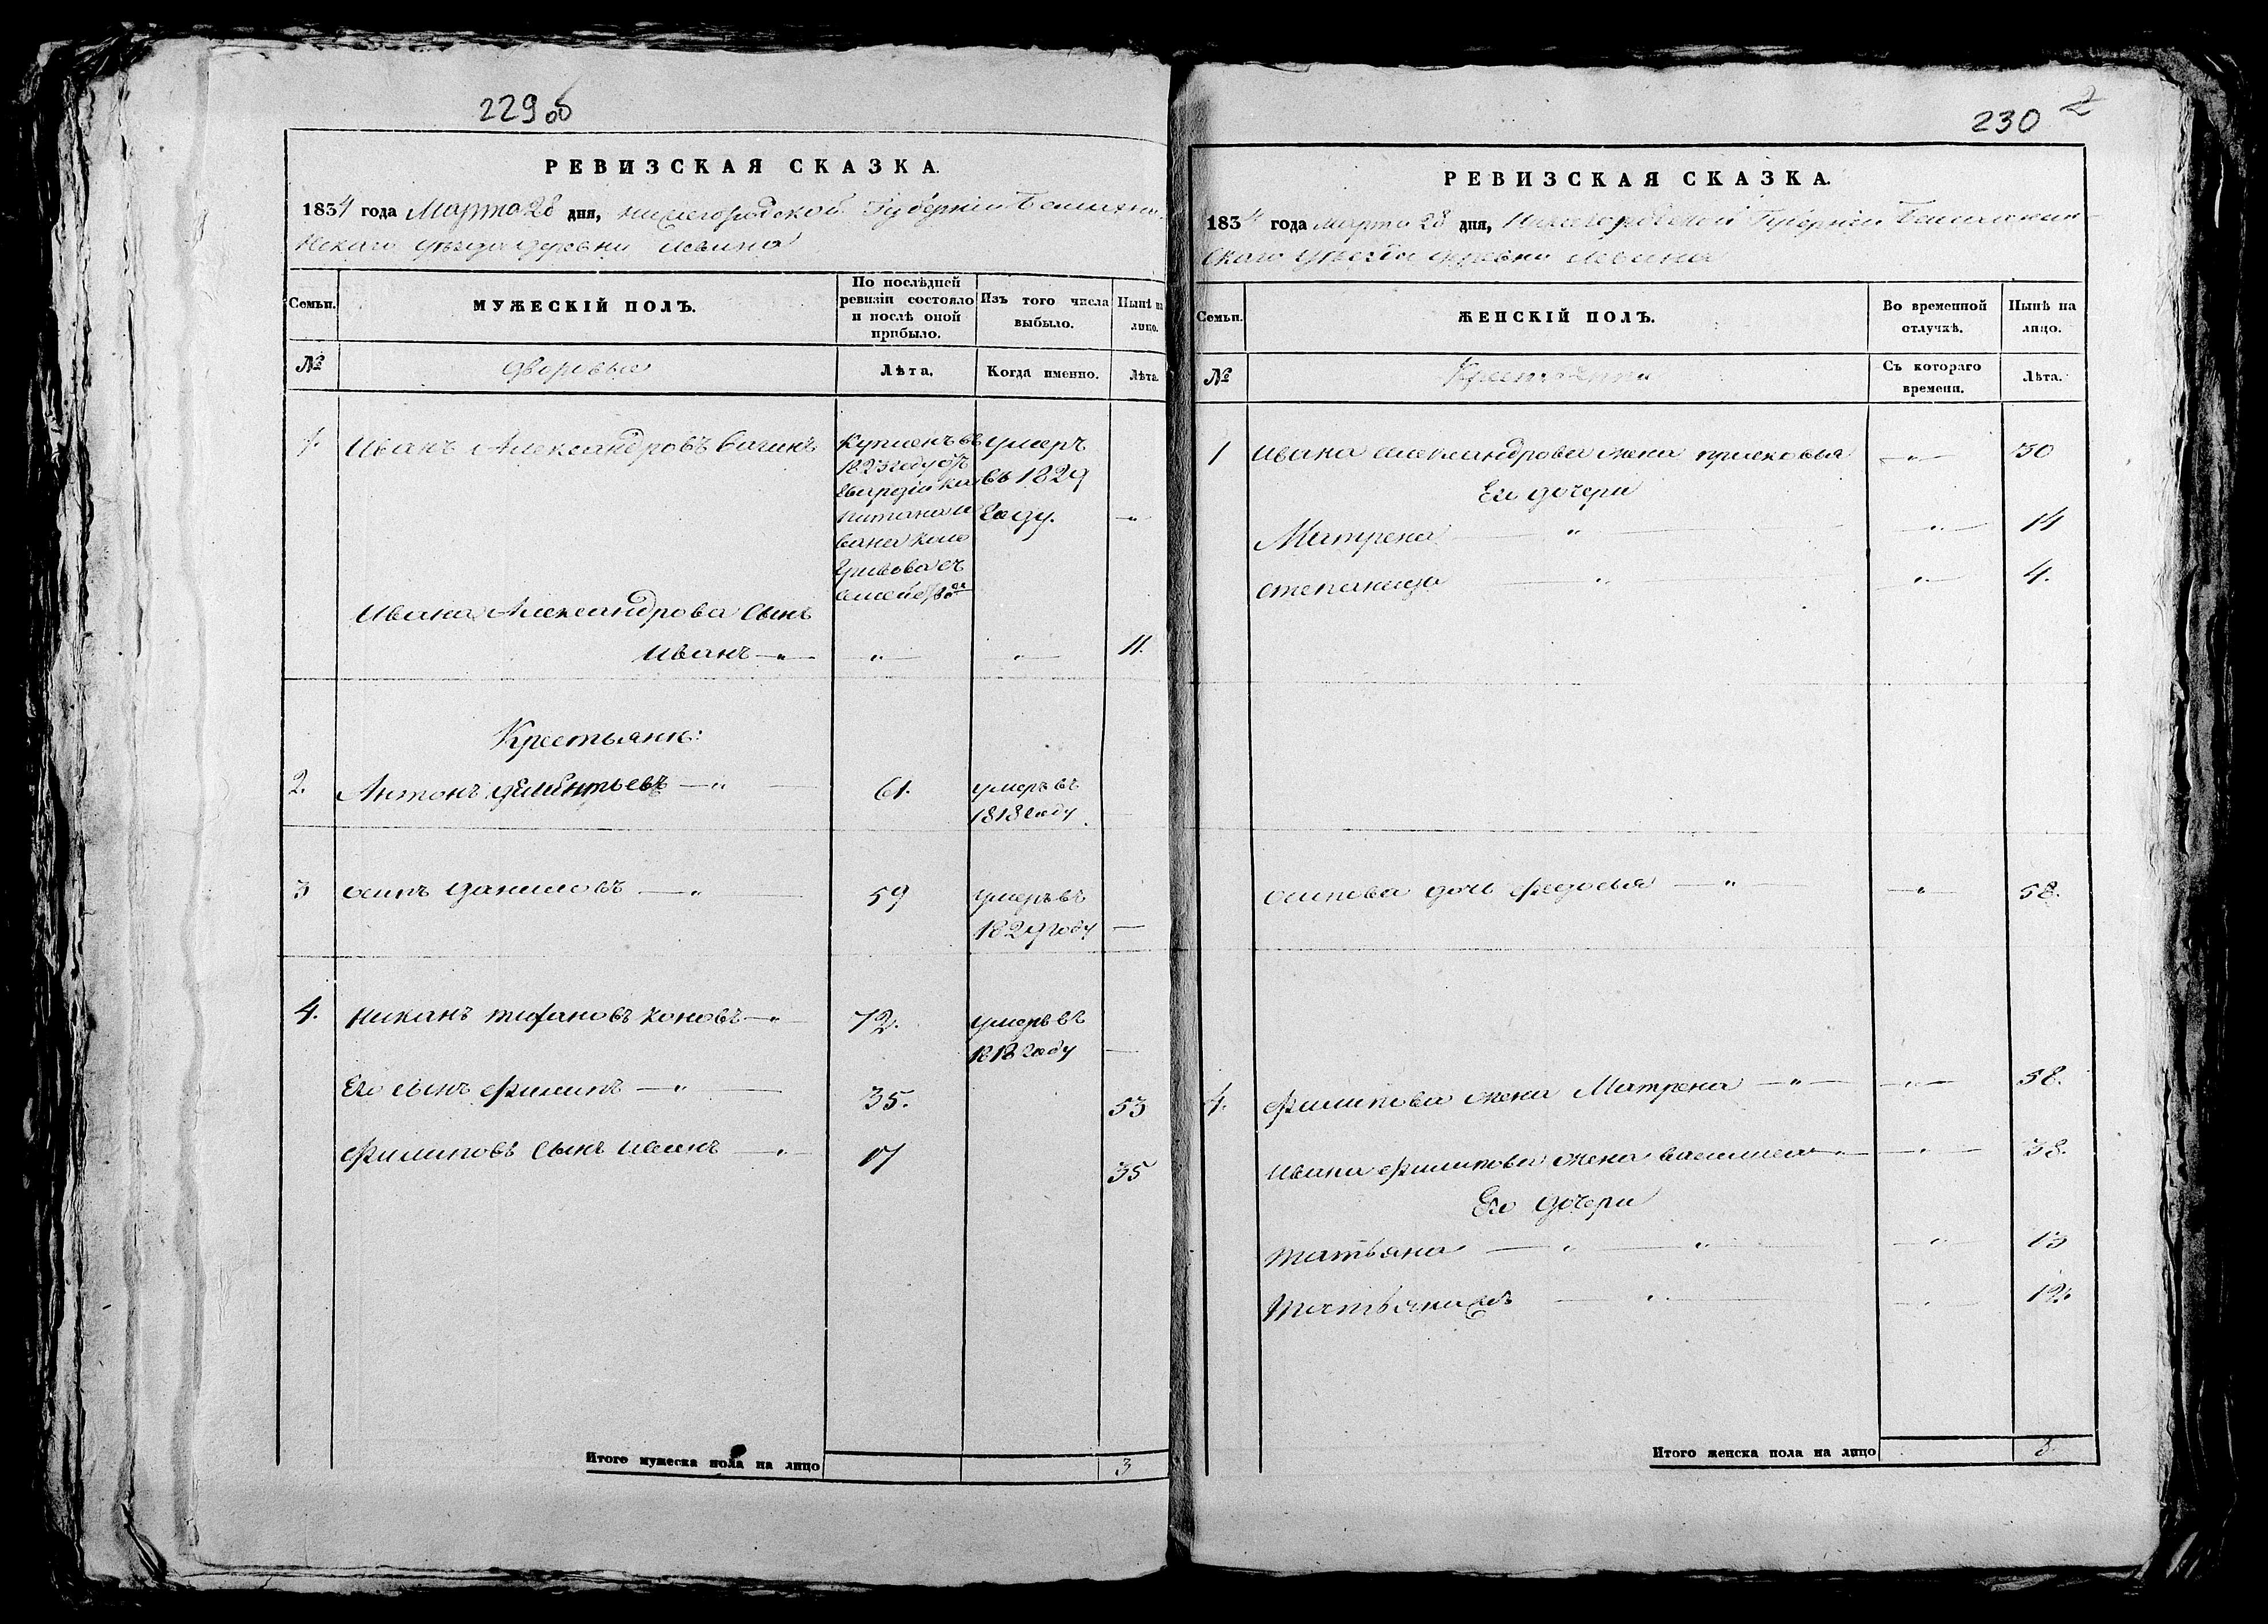 229об
РЕВИЗСКАЯ СКАЗКА.
1834 года Марта 28 дня, нижегородской Губернии
уезда деревни
Семьи.
МУЖЕСКІЙ ПОЛЪ.
По послѣдней ревизіи состояло и послѣ оной прибыло.
Изъ того числа выбыло.
Нынѣ на лицо.
№
дворовыя
Лѣта.
Когда именно.
Лѣта.
1. Иванъ Александровъ
Купленъ въ
1823 году отъ
гвардіи ка
питана и
вана коло
гривова съ
умеръ
въ 1829
году.
Ивана Александрова сынъ
Иванъ 11.
Крестьяне:
2. Антонъ 61. умеръ въ
1818 году.
3 осипъ даниловъ 59 умеръ въ
1829 году
4. 72. умеръ въ
1818 году
Его сынъ филипъ 35. 53
филиповъ сынъ иванъ 17 35
Итого мужеска пола на лицо 3
230
2
РЕВИЗСКАЯ СКАЗКА.
1834 года марта 28 дня, Нижегородской Губернии
скаго уезда деревни
Семьи.
ЖЕНСКІЙ ПОЛЪ.
Во временной отлучкѣ.
Нынѣ на лицо.
№
Крестьянки
Съ котораго времени.
Лѣта.
1 ивана александрова жена прасковья 50
Его дочери
Матрена 14
степанида 4.
осипова дочь федосья 58.
4. филипова жена Матрена 58.
ивана филипова жена василиса 38.
Его дочери
татьяна 13
12.
Итого женска пола на лицо 8.